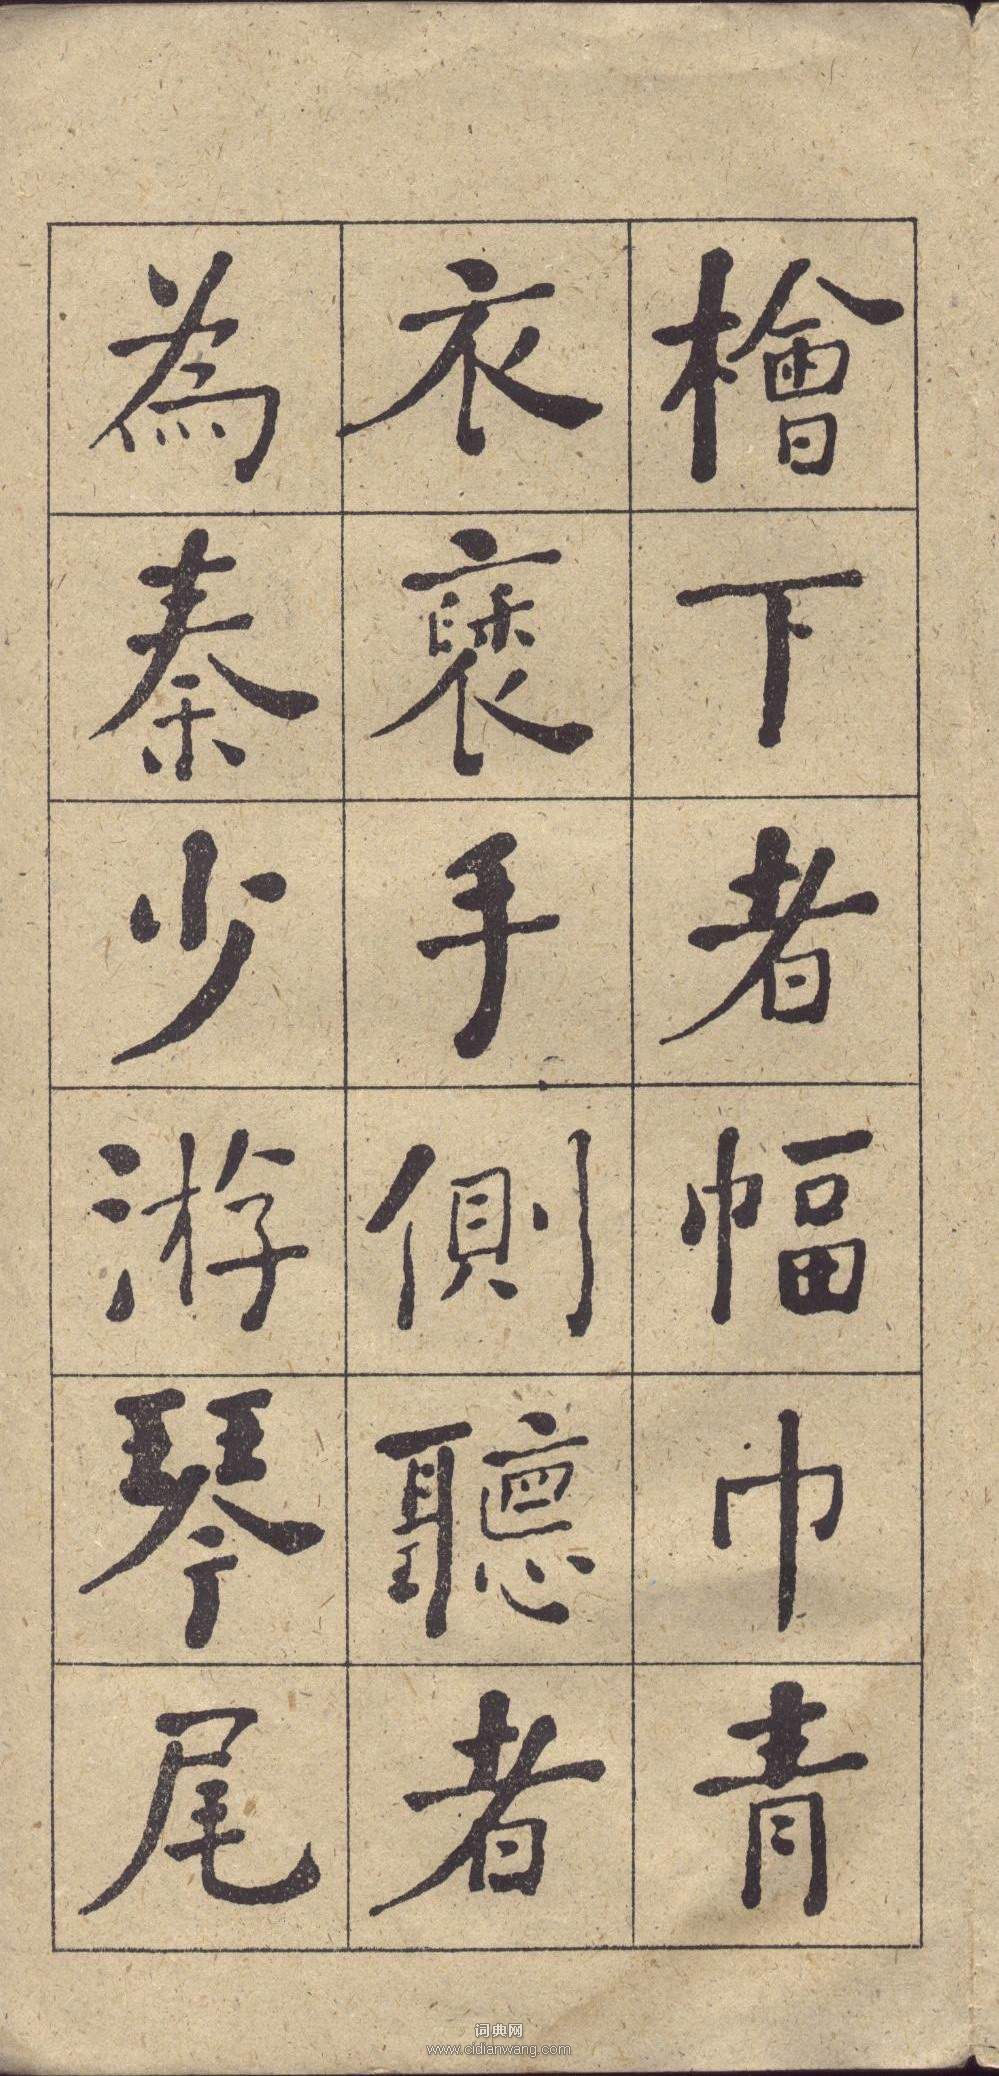 檜下者幅巾青
衣褎手側聽者
為秦少游琴尾
词典网
www.cidianwang.com